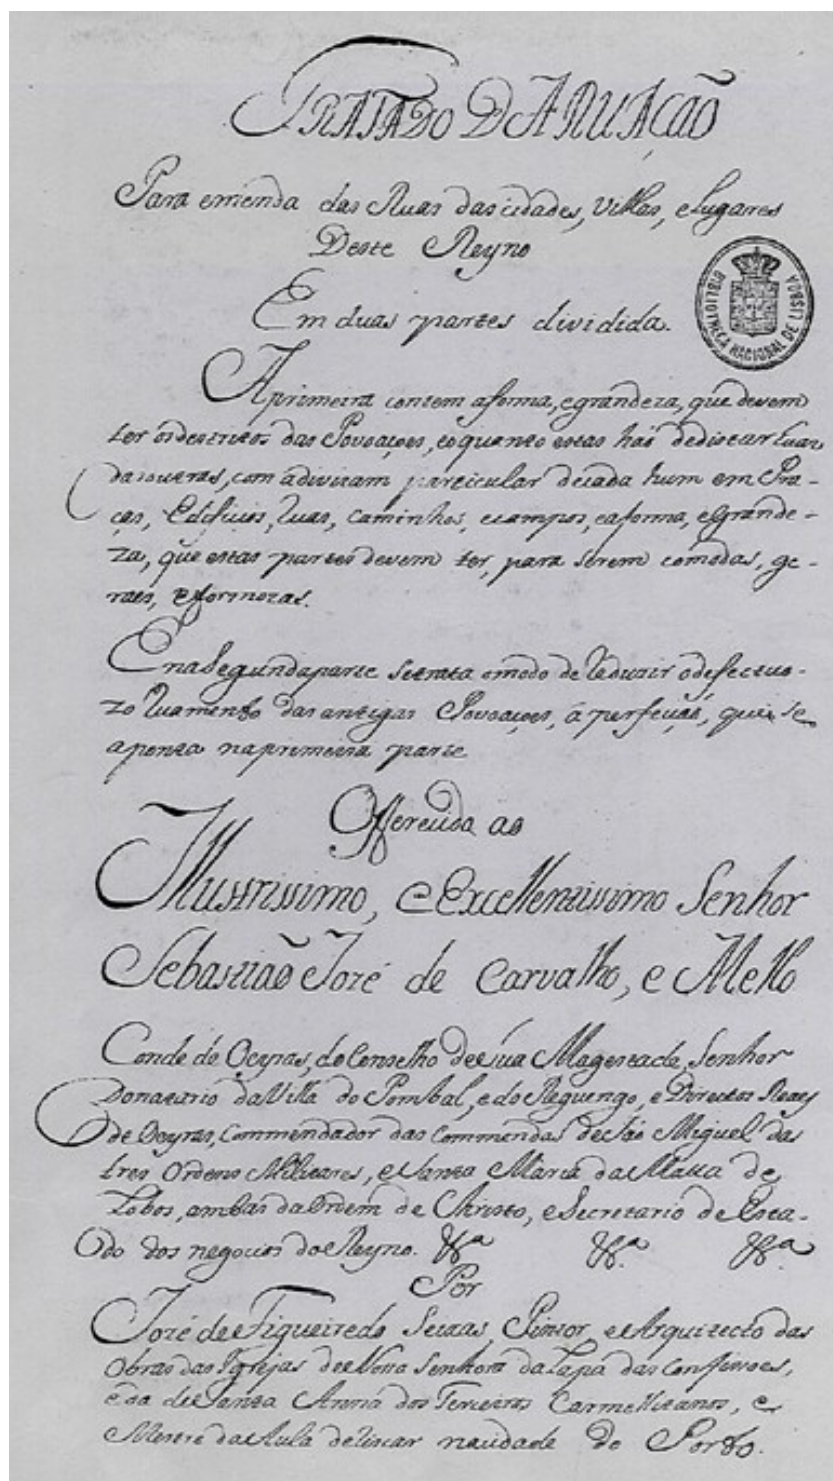 TRATADO DA RUAÇÃO
Para emenda das Ruas das cidades, Villas, e lugares
Deste Reyno
Em duas partes dividida.
BIBLIOTHECA NACIONAL DE LISBOA
A primeira contem a forma, e grandeza, que devem
ter os destritos das Povoações, e o quanto estas hão de distar huas
das outras, com a divizam particular de cada hum em Pra-
ças, Edificios, Ruas, caminhos, e campos, e a forma, e grande-
za, que estas partes devem ter, para serem comodas, ge-
raes, e formozas.
E na Segunda parte se trata o modo de Reduzir o defectuo-
zo Ruamento das antigas Povoações, á perfeiçaõ, que se
aponta na primeira parte
Offerecida ao
Illustrissimo, e Excellentissimo Senhor
Sebastião Jozé de Carvalho, e Mello
Conde de Oeyras, do Conselho de sua Magestade, Senhor
Donatario da Villa do Pombal, e do Reguengo, e Direitos Reaes
de Oeyras, Commendador das Commendas de São Miguel das
tres Ordens Militares, e Santa Maria da Matta de
Lobos, ambas da Ordem de Christo, e Secretario de Esta-
do dos negocios do Reyno. &ª &ª &ª
Por
Jozé de Figueiredo Seixas, Pintor, e Arquitecto das
Obras das Igrejas de Nossa Senhora da Lapa das Confissoes,
e da de Santa Anna dos Terceiros Carmelitanos, e
Mestre da Aula de riscar na cidade do Porto.